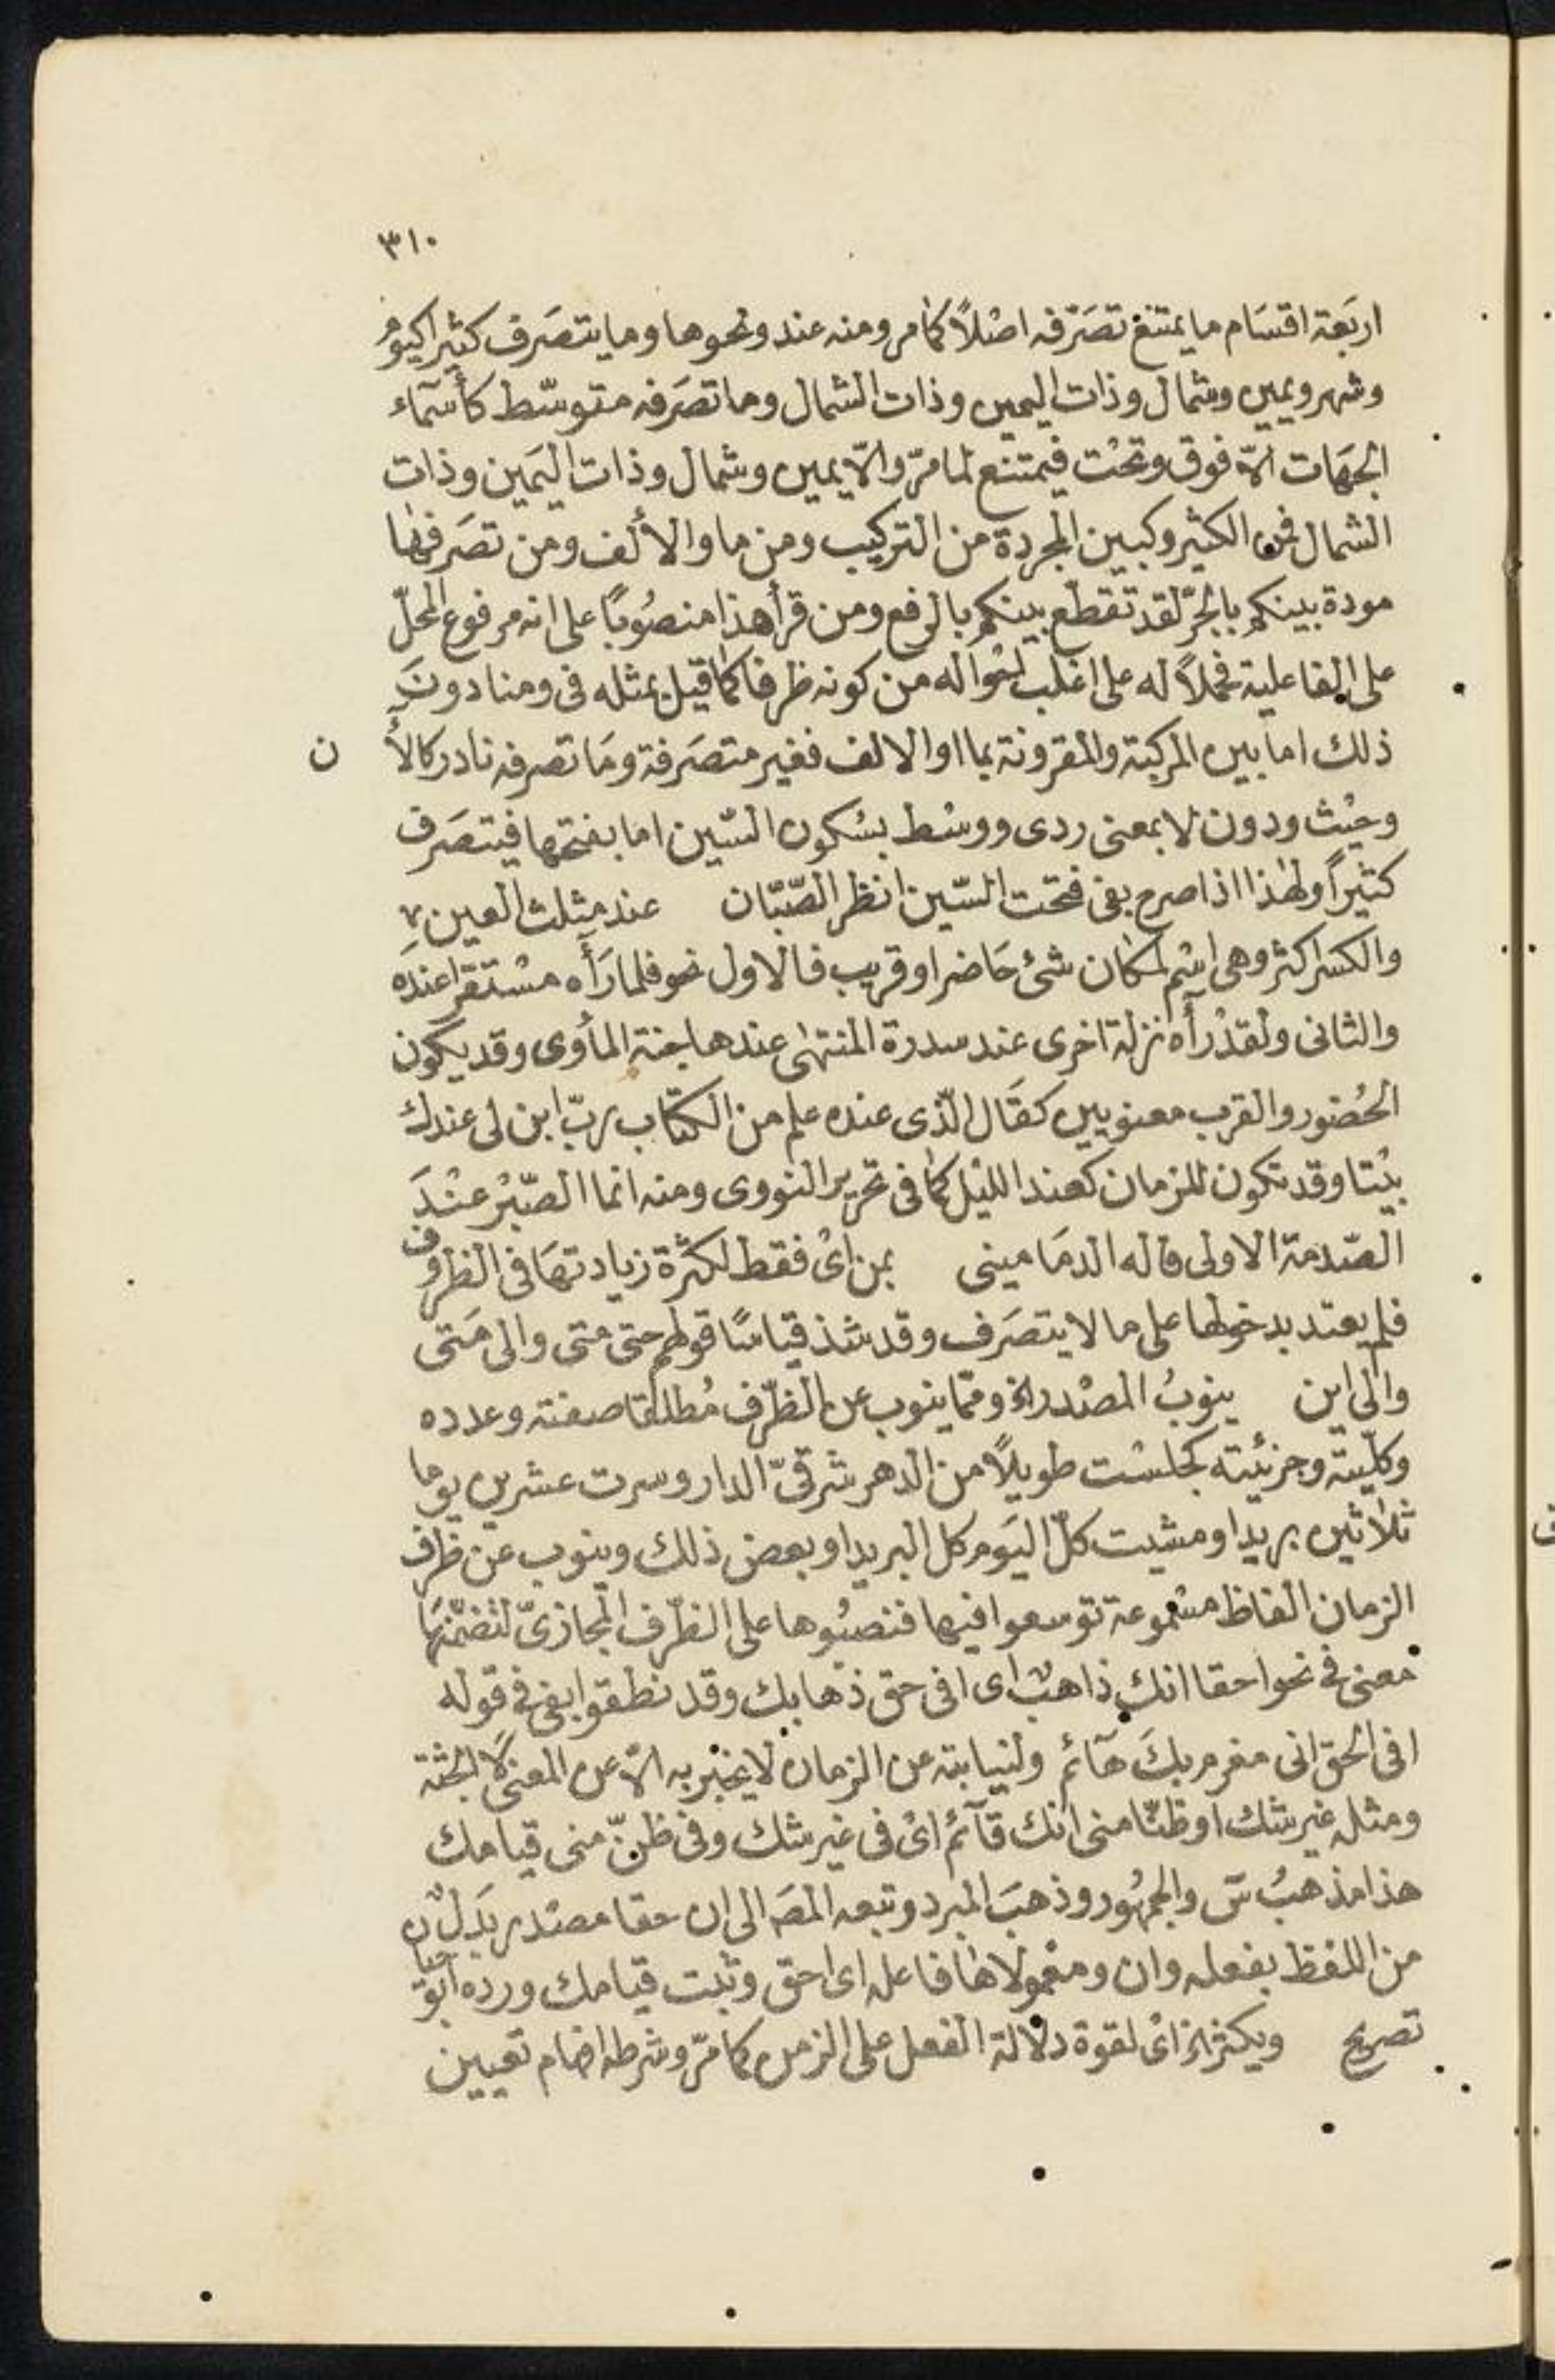 ٣١٠
اربَعة اقسَام ما يمتنع تصَرّفه اصْلاً كما مر ومنه عند ونحوها وما يتصَرف كثيرا كيوم
وشهر ويمين وشمال وذات اليمين وذات الشمال وما تصَرفه متوسّط كأسمآء
الجهَات الّا فوق وتحْت فيمتنع لما مرّ والّا يمين وشمال وذات اليَمين وذات
الشمال فمن الكثير وكبين المجردة من التركيب ومن ما والألف ومن تصَرفها
مودة بينكم بالجرّ لقد تقطّع بينكم بالرفع ومن قرأ هذا منصُوبًا على انه مرفوع المحلّ
على الفاعلية فحملاً له على اغلب احواله من كونه ظرفا كما قيل بمثله فى ومنا دونَ
ذلك اما بين المركبة والمقرونة بما او الالف فغير متصَرفة ومَا تصرفه نادر كالأن
وحيْث ودون لا بمعنى ردى ووسْط بسْكون السّين اما بفتحها فيتصَرف
كثيراً ولهذا اذا صرح بفى فتحت السّين انظر الصّبّان عند مثلث العين
والكسر اكثر وهى اسْم لمكان شئ حَاضر او قريب فالاول نحو فلما رَأَه مسْتقرا عندَه
والثانى ولقدْ رأَه نزلة اخرى عند سدرة المنتهى عندها جنة المأوى وقد يكون
الحُضور والقرب معنويين كقَال الّذى عنده علم من الكتاب ربّ ابن لى عندك
بيْتا وقد تكون للزمان كعند الليْل كما فى تحرير النووى ومنه انما الصّبْر عنْدَ
الصّدمة الاولى قاله الدمَامينى بمن اىْ فقط لكثرة زيادتهَا فى الظروف
فلم يعتد بدخولها على ما لا يتصَرف وقد شذ قياسًا قولهم حتى متى والى مَتى
والى اين ينوبُ المصْدر الخ ومّما ينوب عن الظرّف مُطلقا صفته وعدده
وكلّيته وجزئيته كجلسْت طويلاً من الدهر شرقىّ الدار وسرت عشرين يوما
ثلاثين بريدا ومشيت كلّ اليَوم كل البريد او بعض ذلك وينوب عن ظرف
الزمان الفاظ مسْموعة توسعوا فيها فنصبُوها على الظرّف المجازىّ لتضمّنهَا
معنى فى نحو احقا انك ذاهبٌ اى افى حق ذهابك وقد نطقوا بفى فى قوله
افى الحق انى مغرم بكَ هآئم ولنيابته عن الزمان لا يخبر به الّا عن المعنى لا الجثة
ومثله غير شك او ظنّا منى انك قآئم اىْ فى غير شك وفى ظنّ منى قيامك
هذا مذهبُ سٓ والجمهُور وذهبَ المبرد وتبعه المصَ الى ان حقا مصْدر بَدلٌ
من اللفظ بفعله وان ومعْمولاها فاعله اى احق وثبت قيامك ورده ابو حيان
تصريح ويكثر الخ اىْ لقوة دلالة الفعل على الزمن كما مرّ وشرطه افهام تعيين